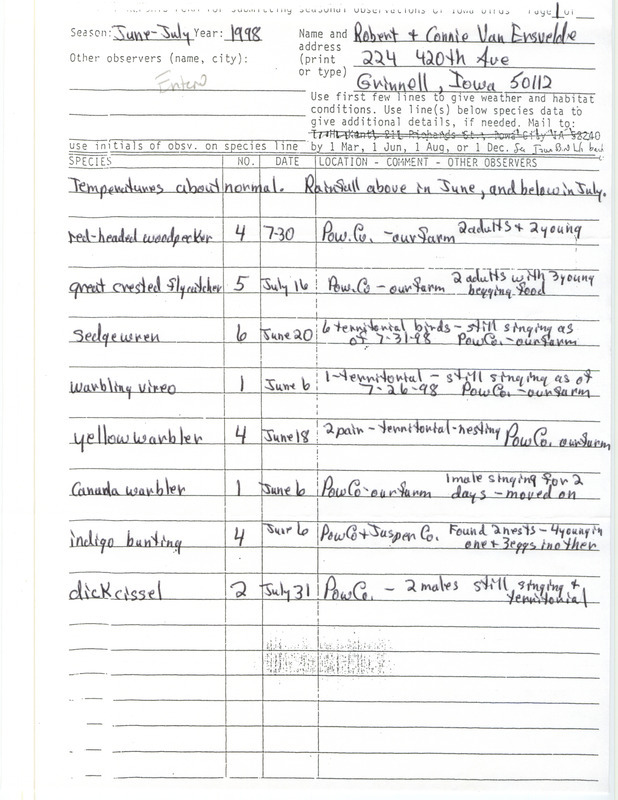 for submitting seasonal observations of Iowa birds Page 1 of
Season: June-July Year: 1998 Name and Robert & Connie Van Ersvelde
Other observers (name, city): address (print or type) 224 420th Ave
Enter Grinnell, Iowa 50112
Use first few lines to give weather and habitat
conditions. Use line(s) below species data to
give additional details, if needed. Mail to:
use initials of obsv. on species line by 1 Mar, 1 Jun, 1 Aug, or 1 Dec.
SPECIES NO. DATE LOCATION - COMMENT - OTHER OBSERVERS
Temperatures about normal. Rainfall above in June, and below in July.
red-headed woodpecker 4 7-30 Pow.Co. - our farm 2 adults + 2 young
great crested flycatcher 5 July 16 Pow.Co - our farm 2 adults with 3 young
begging food
Sedge wren 6 June 20 6 territorial birds - still singing as
of 7-31-98 Pow Co. - our farm
warbling vireo 1 June 6 1 - territorial - still singing as of
7-26-98 Pow Co. - our farm
yellow warbler 4 June 18 2 pair - territorial - nesting Pow Co. our farm
Canada warbler 1 June 6 Pow Co - our farm 1 male singing for 2
days - moved on
indigo bunting 4 June 6 Pow Co + Jasper Co. Found 2 nests - 4 young in
one + 3 eggs in other
dickcissel 2 July 31 Pow Co. - 2 males still singing +
territorial